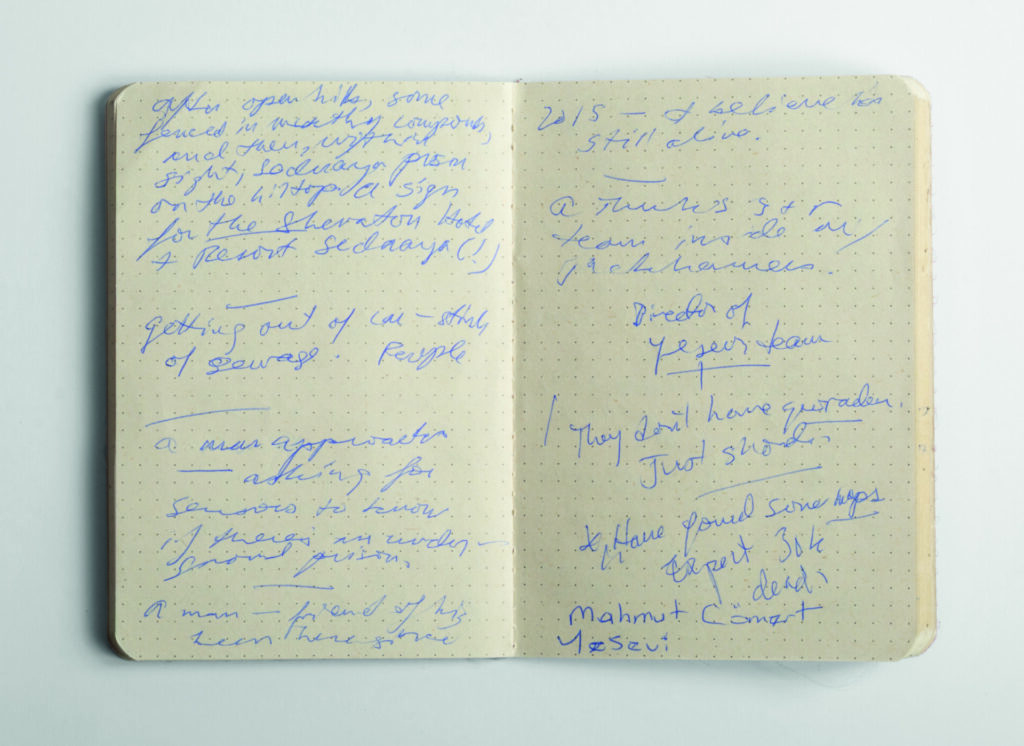 open hills, some
fenced in wealthy compounds,
and then, within
sight, Sednaya prison
on the hilltop. A sign
for the Sheraton Hotel
+ Resort Sednaya (!)
Getting out of car – stink
of sewage. People
A man approaches
— asking for
sensors to know
if there's an under-
ground prison.
A man — friend of his
been here since
2015 — I believe he's
still alive.
@ Thinks
team inside w/
jackhammers.
Director of
Yesevi team
They don't have
Just shovels
Have found some maps
Expect 30k
dead.
Mahmut Cömert
Yesevi